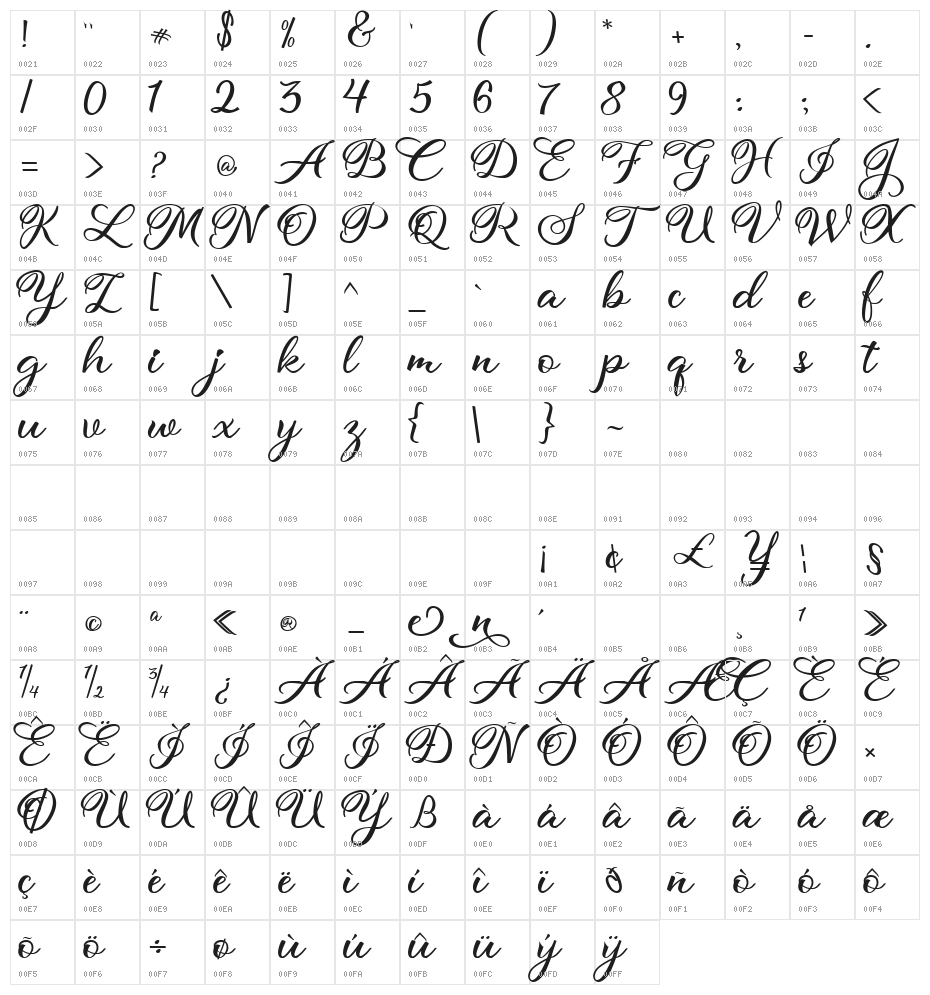 ! " # $ % & ' ( ) * + , - .
0021 0022 0023 0024 0025 0026 0027 0028 0029 002A 002B 002C 002D 002E
/ 0 1 2 3 4 5 6 7 8 9 : ; <
002F 0030 0031 0032 0033 0034 0035 0036 0037 0038 0039 003A 003B 003C
= > ? @ A B C D E F G H I J
003D 003E 003F 0040 0041 0042 0043 0044 0045 0046 0047 0048 0049 004A
K L M N O P Q R S T U V W X
004B 004C 004D 004E 004F 0050 0051 0052 0053 0054 0055 0056 0057 0058
Y Z [ \ ] ^ _ ` a b c d e f
0059 005A 005B 005C 005D 005E 005F 0060 0061 0062 0063 0064 0065 0066
g h i j k l m n o p q r s t
0067 0068 0069 006A 006B 006C 006D 006E 006F 0070 0071 0072 0073 0074
u v w x y z { \ } ~
0075 0076 0077 0078 0079 007A 007B 007C 007D 007E 0080 0082 0083 0084
0085 0086 0087 0088 0089 008A 008B 008C 008E 0091 0092 0093 0094 0096
¡ ¢ £ ¥ ¦ §
0097 0098 0099 009A 009B 009C 009E 009F 00A1 00A2 00A3 00A5 00A6 00A7
¨ © ª « ® _ e n ´ ¸ ¹ »
00A8 00A9 00AA 00AB 00AE 00B1 00B2 00B3 00B4 00B5 00B6 00B8 00B9 00BB
¼ ½ ¾ ¿ À Á Â Ã Ä Å Æ Ç È É
00BC 00BD 00BE 00BF 00C0 00C1 00C2 00C3 00C4 00C5 00C6 00C7 00C8 00C9
Ê Ë Ì Í Î Ï Ð Ñ Ò Ó Ô Õ Ö ×
00CA 00CB 00CC 00CD 00CE 00CF 00D0 00D1 00D2 00D3 00D4 00D5 00D6 00D7
Ø Ù Ú Û Ü Ý ß à á â ã ä å æ
00D8 00D9 00DA 00DB 00DC 00DD 00DF 00E0 00E1 00E2 00E3 00E4 00E5 00E6
ç è é ê ë ì í î ï ð ñ ò ó ô
00E7 00E8 00E9 00EA 00EB 00EC 00ED 00EE 00EF 00F0 00F1 00F2 00F3 00F4
õ ö ÷ ø ù ú û ü ý ÿ
00F5 00F6 00F7 00F8 00F9 00FA 00FB 00FC 00FD 00FF